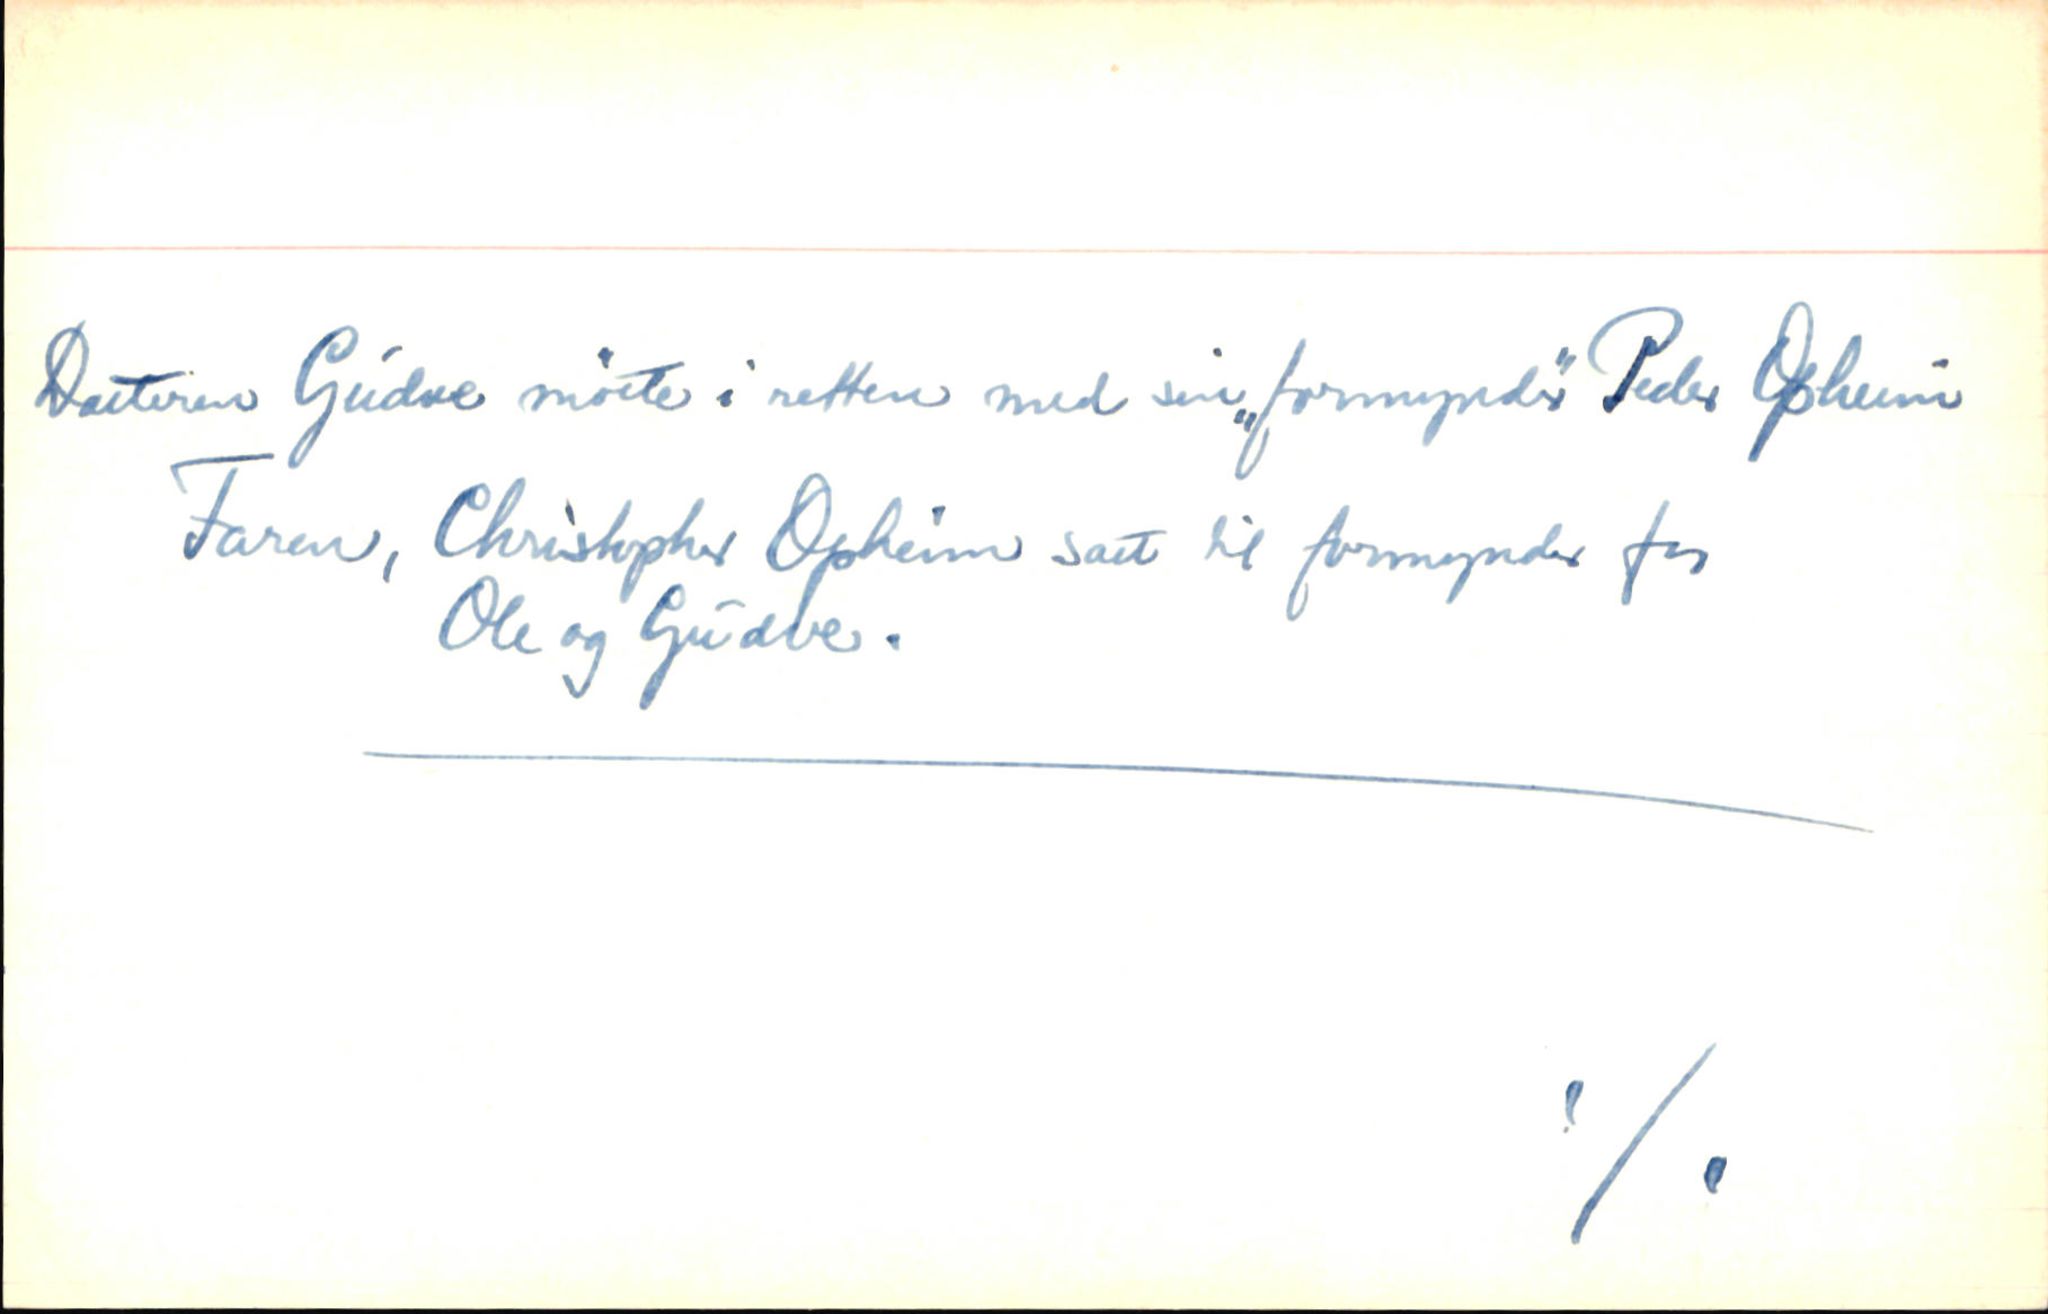 Datteren Gudve møtte i retten med sin „formynder” Peder Opheim
Faren, Christopher Opheim satt til formynder for
Ole og Gudve.
./.